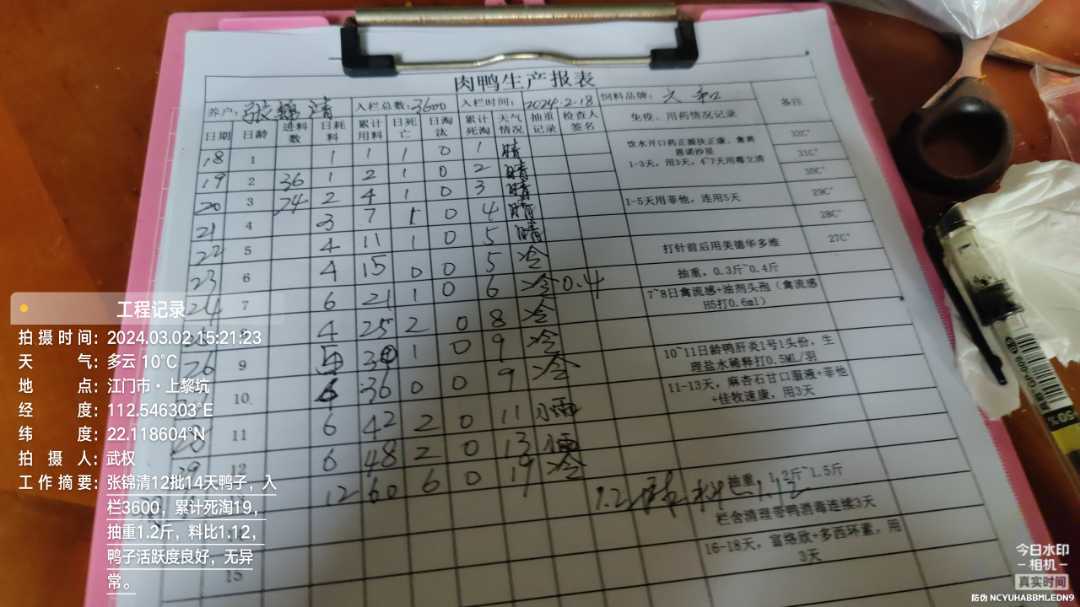 肉鸭生产报表
养户：张锦清 入栏总数：3600 入栏时间：2024.2.18 饲料品牌：六和
日期 日龄 进料数 日耗料 累计用料 日死亡 日淘汰 累计死淘 天气情况 抽重记录 检查人签名 免疫、用药情况记录 备注
18 1 1 1 1 0 1 晴
19 2 36 1 2 1 0 2 晴
20 3 24 2 4 1 0 3 晴
21 4 3 7 1 0 4 晴
22 5 4 11 1 0 5 冷
23 6 4 15 0 0 5 冷
24 7 6 21 1 0 6 冷 0.4
4 25 2 0 8 冷
26 9 5 30 1 0 9 冷
10 6 36 0 0 9 冷
11 6 42 2 0 11 小雨
12 6 48 2 0 13
12 60 6 0 19 冷
1.2
15
1-3天，用3天，4-7天用毒立清
1-5天用菲他，连用5天
打针前后用美德华多维
抽重，0.3斤~0.4斤
7~8日禽流感+油剂头孢（禽流感H5打0.6ml）
10~11日龄鸭肝炎1号1头份，生理盐水稀释打0.5ML/羽
11-13天，麻杏石甘口服液+菲他+佳牧速康，用3天
抽重，1.2斤~1.5斤
栏舍清理带鸭消毒连续3天
16-18天，富络欣+多西环素，用3天
32C°
31C°
30C°
29C°
28C°
27C°
工程记录
拍摄时间：2024.03.02 15:21:23
天气：多云 10℃
地点：江门市·上黎坑
经度：112.546303°E
纬度：22.118604°N
拍摄人：武权
工作摘要：张锦清12批14天鸭子，入
栏3600，累计死淘19，
抽重1.2斤，料比1.12，
鸭子活跃度良好，无异
常。
今日水印
-相机-
真实时间
防伪 NCYUHABBMLEDN9